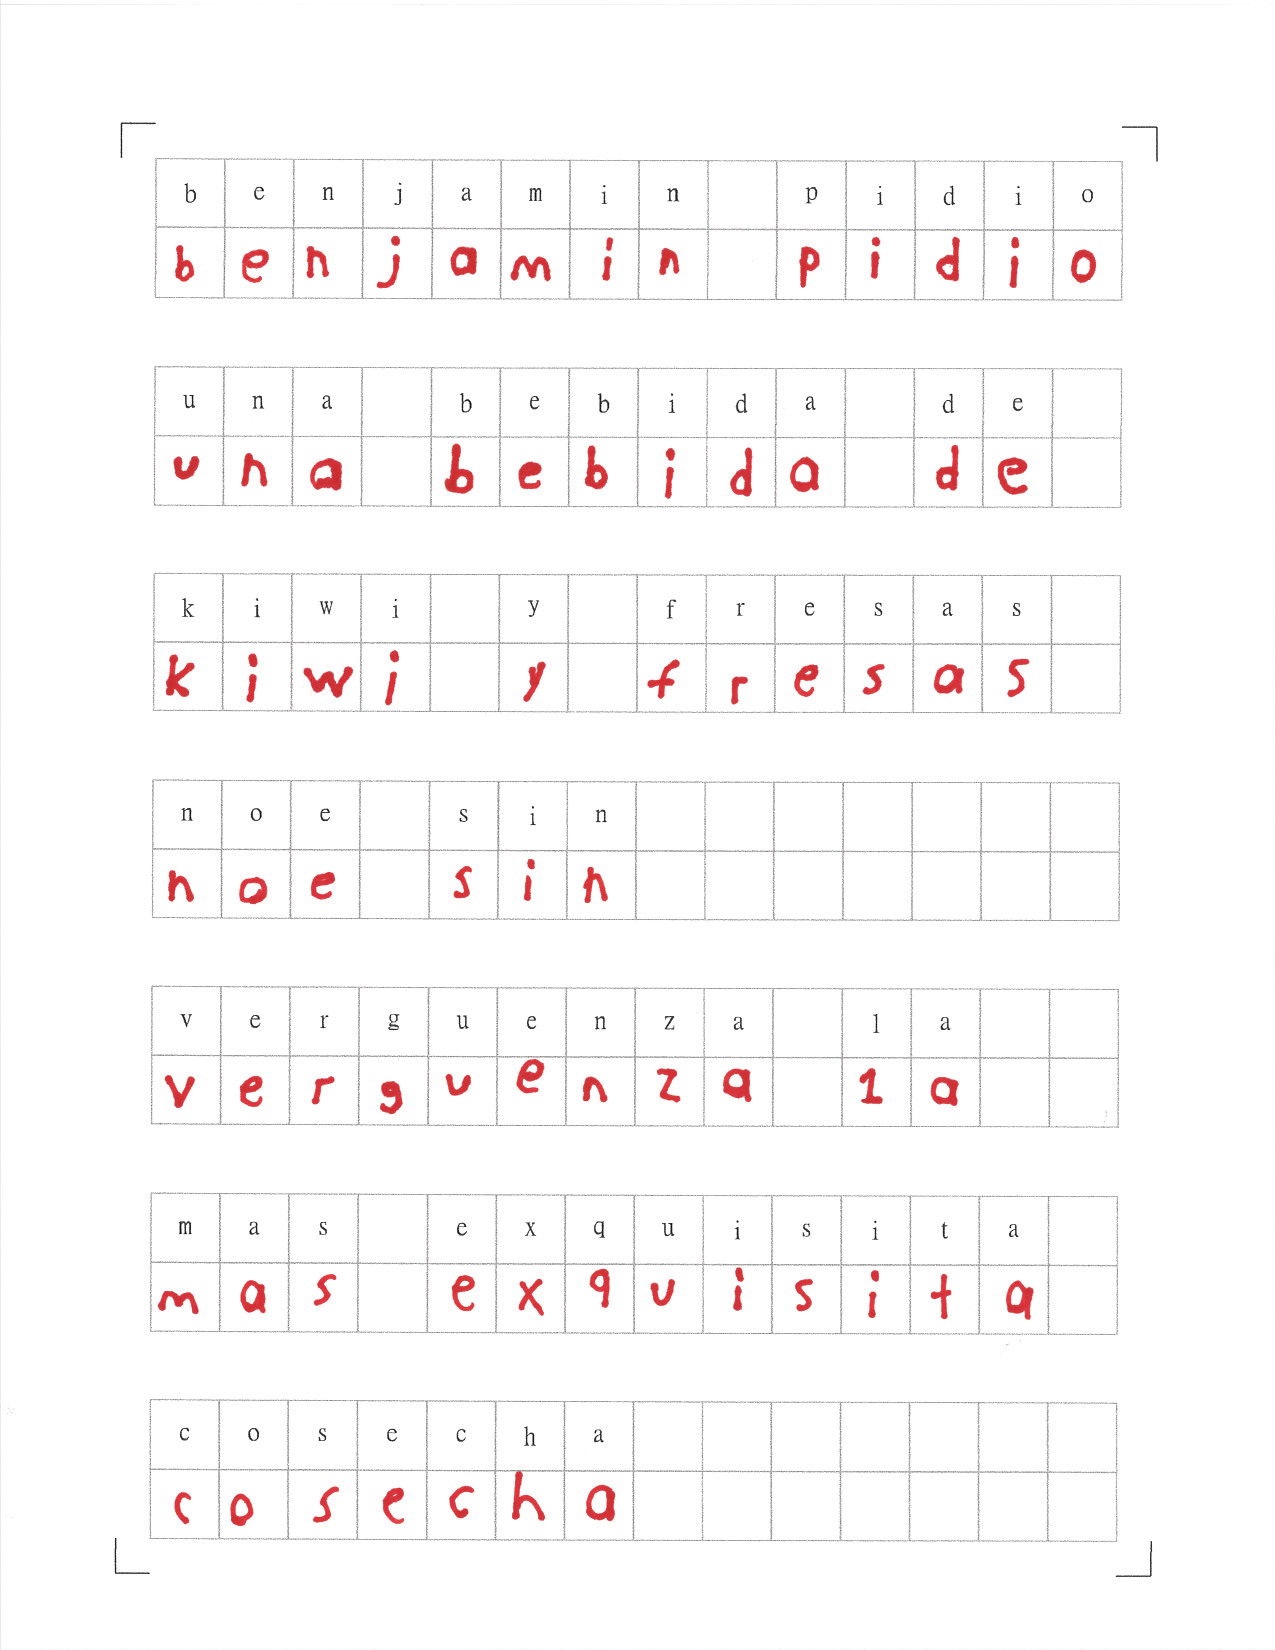 benjamin pidio
benjamin pidio
una bebida de
una bebida de
kiwi y fresas
kiwi y fresas
noe sin
noe sin
verguenza la
verguenza 1a
mas exquisita
mas exquisita
cosecha
cosecha